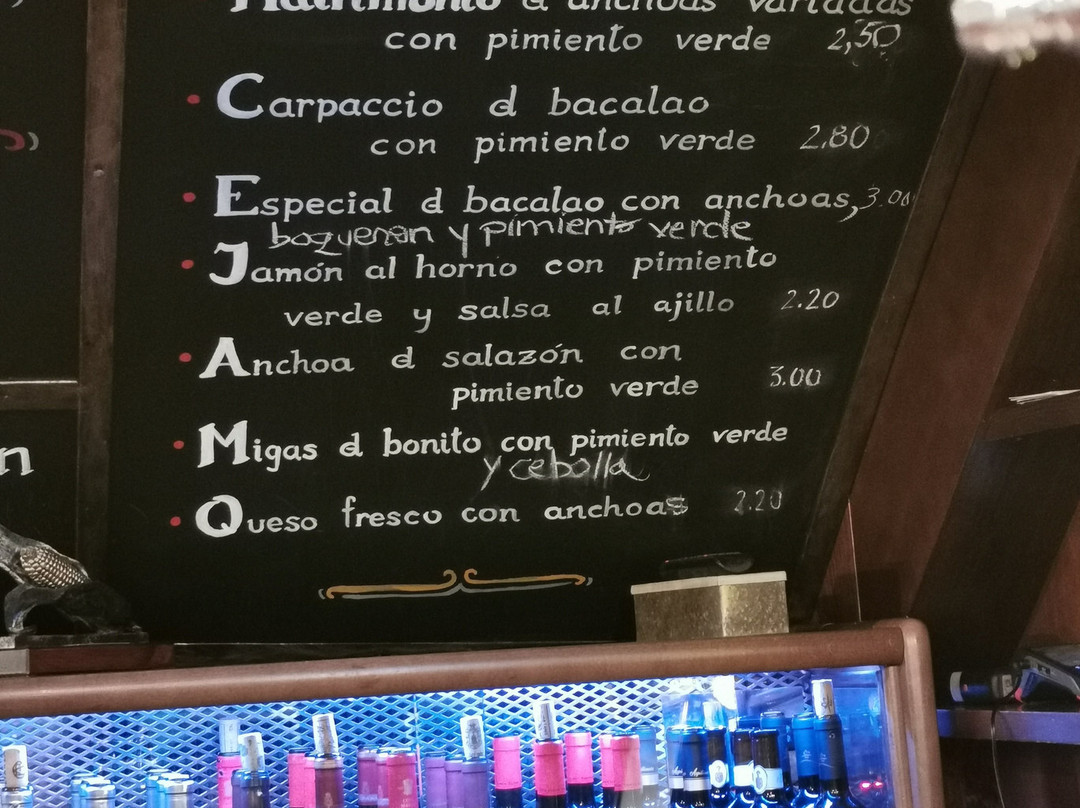 Matrimonio d anchoas variadas
con pimiento verde 2,50
Carpaccio d bacalao
con pimiento verde 2,80
Especial d bacalao con anchoas, 3.00
boqueron y pimiento verde
Jamón al horno con pimiento
verde y salsa al ajillo 2.20
Anchoa d salazón con
pimiento verde 3.00
Migas d bonito con pimiento verde
y cebolla
Queso fresco con anchoas 2.20
n